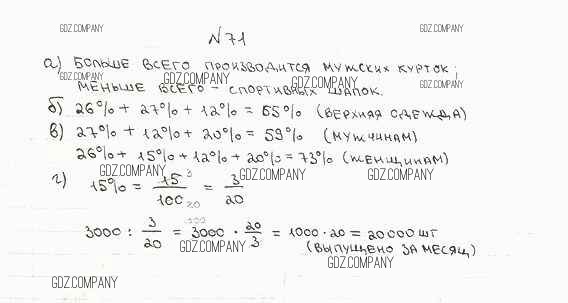 GDZ.COMPANY GDZ.COMPANY
№71
а) БОЛЬШЕ ВСЕГО ПРОИЗВОДИТСЯ МУЖСКИХ КУРТОК;
GDZ.COMPANY GDZ.COMPANY GDZ.COMPANY GDZ.COMPANY
МЕНЬШЕ ВСЕГО – СПОРТИВНЫХ ШАПОК.
б) 26% + 27% + 12% = 65% (ВЕРХНЯЯ ОДЕЖДА)
в) 27% + 12% + 20% = 59% (МУЖЧИНАМ)
26% + 15% + 12% + 20% = 73% (ЖЕНЩИНАМ)
GDZ.COMPANY GDZ.COMPANY GDZ.COMPANY
г) 15% = 15 3/100 20 = 3/20
3000 : 3/20 = 3000 · 20/3 = 1000 · 20 = 20000 ШТ
GDZ.COMPANY (ВЫПУЩЕНО ЗА МЕСЯЦ)
GDZ.COMPANY
GDZ.COMPANY